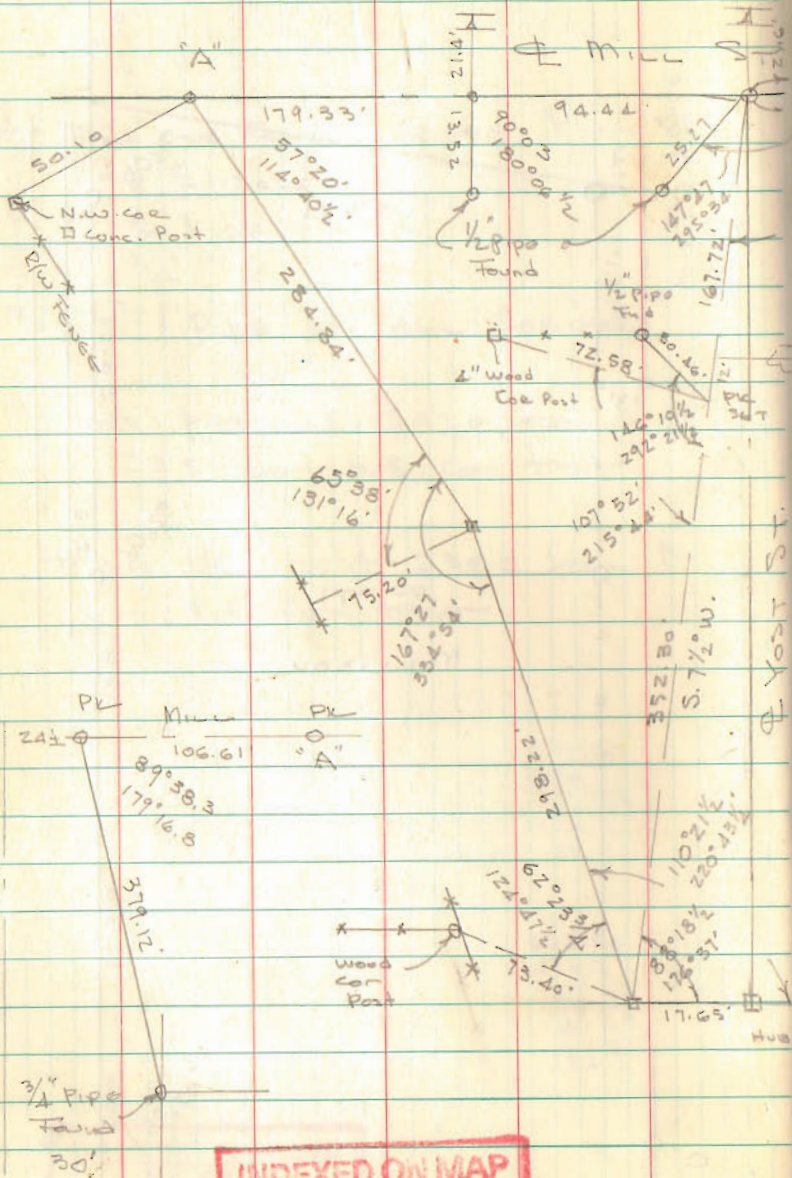 "A"
21.4'
℄ MILL S
179.33'
94.44
50.10
57°20'
114°40½'
25.31
90°03
180°06½
25.27
147°47
295°34
N.W. COR
□ Conc. Post
R/W FENCE
½" Pipe
Found
167.72'
284.84'
½" Pipe
Fnd
72.58'
50.46'
12'
4" Wood
Cor Post
PK
SET
146°10½
292°21½
65°38'
131°16'
107°52'
215°44'
75.20'
167°27
334°54'
352.30'
S. 7½° W.
℄ YOST ST.
PK
MILL
PK
24½
106.61
"A"
89°38.3
179°16.8
298.22'
110°21½
220°43¼
379.12'
62°23¾
124°47½
88°18½
176°37'
wood
cor
Post
73.40'
17.65'
HUB
3/4" Pipe
Found
30'
INDEXED ON MAP